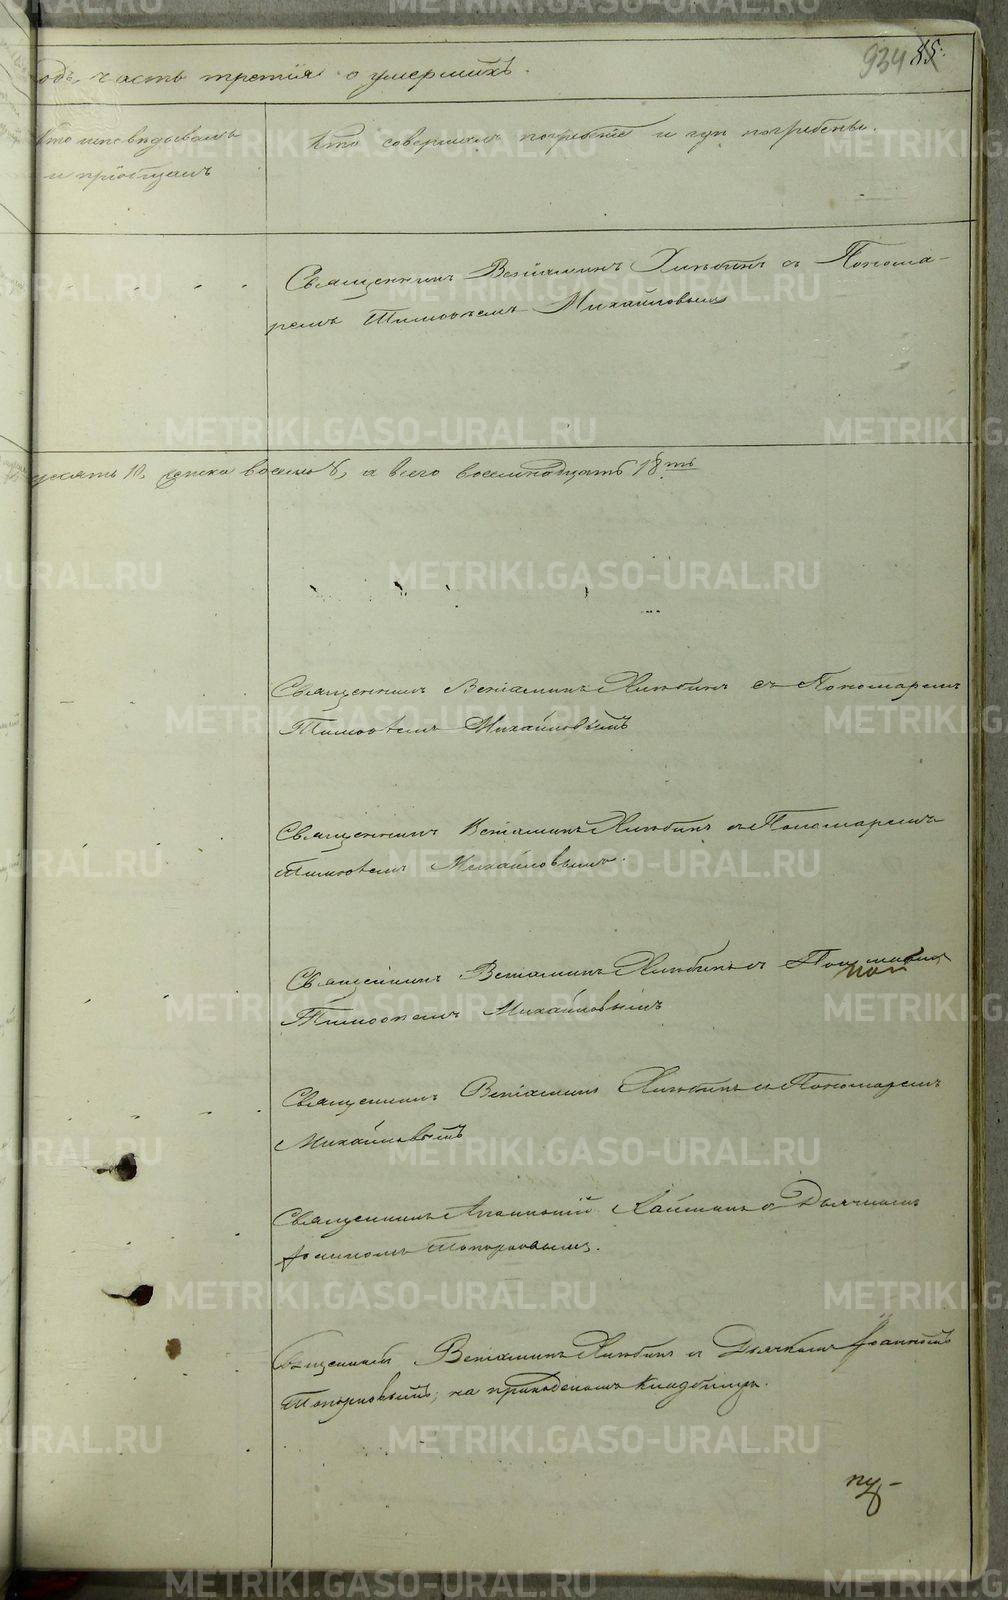 934 85.
одъ, часть третія о умершихъ.
Кто исповѣдывалъ
и пріобщалъ
Кто совершалъ погребеніе и гдѣ погребены.
Священникъ Веніаминъ Хлыбинъ съ Понома-
ремъ Тимоѳеемъ Михайловымъ
десять 10, женска восемь 8, а всего восемнадцать 18ть
Священникъ Веніаминъ Хлыбинъ съ Пономаремъ
Тимоѳеемъ Михайловымъ
Священникъ Веніаминъ Хлыбинъ съ Пономаремъ
Тимоѳеемъ Михайловымъ.
Священникъ Веніаминъ Хлыбинъ съ
Тимоѳеемъ Михайловымъ
Священникъ Веніаминъ Хлыбинъ съ Пономаремъ
Михайловымъ
Священникъ съ Дьячкомъ
Іоанномъ Топорковымъ.
Священникъ Веніаминъ Хлыбинъ и Дьячкомъ Іоанномъ
Топорковымъ, на приходскомъ кладбищѣ.
METRIKI.GASO-URAL.RU